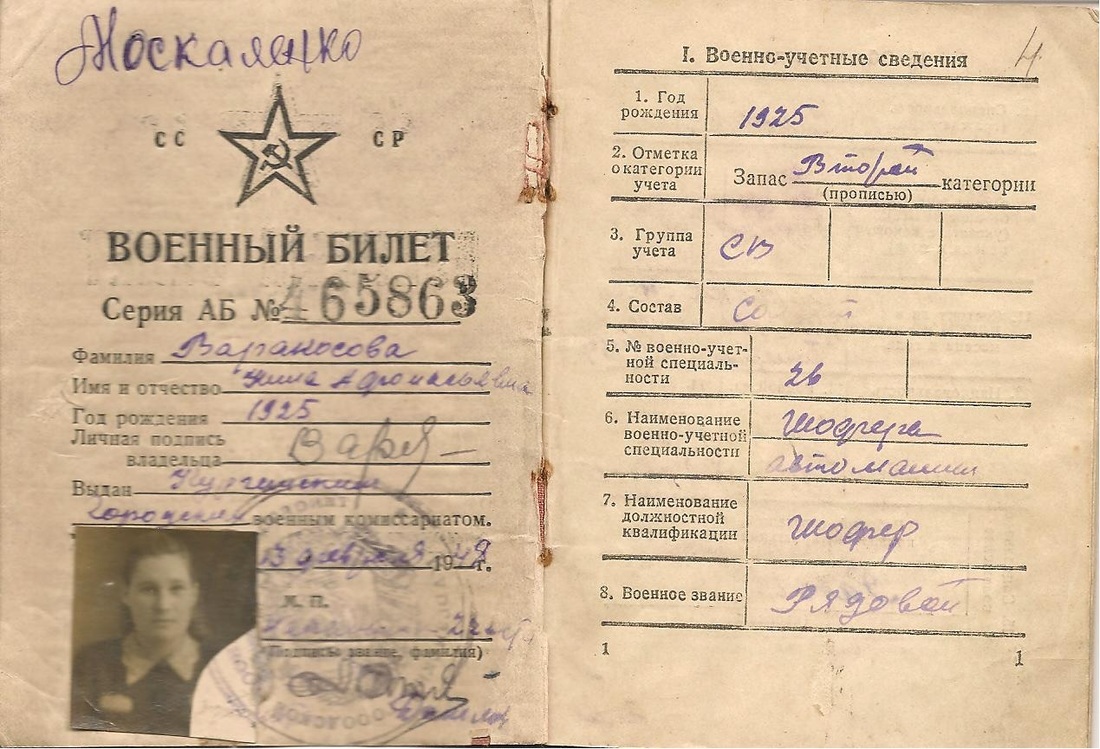 Москаленко
СС СР
ВОЕННЫЙ БИЛЕТ
Серия АБ № 465863
Фамилия Вараносова
Имя и отчество Нина Афонасьевна
Год рождения 1925
Личная подпись
владельца
Выдан
Городским военным комиссариатом.
13 февраля 1948 г.
М. П.
(Подпись, звание, фамилия)
4
I. Военно-учетные сведения
1. Год
рождения 1925
2. Отметка
о категории
учета Запас Второй категории
(прописью)
3. Группа
учета СВ
4. Состав
5. № военно-учет-
ной специаль-
ности 26
6. Наименование
военно-учетной
специальности Шофера
автомашин
7. Наименование
должностной
квалификации шофер
8. Военное звание Рядовой
1 1